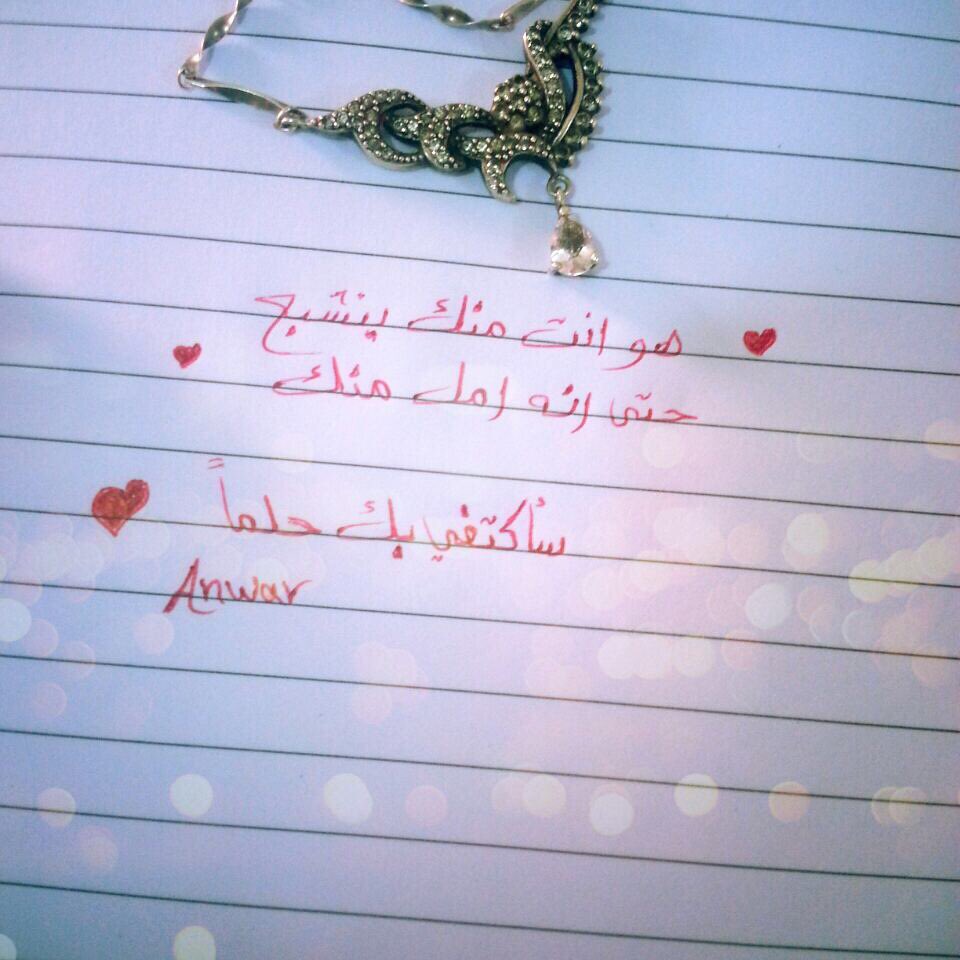 هو انت منك ينشبع
حتى انه امل منك
سأكتفي بك حلماً
Anwar